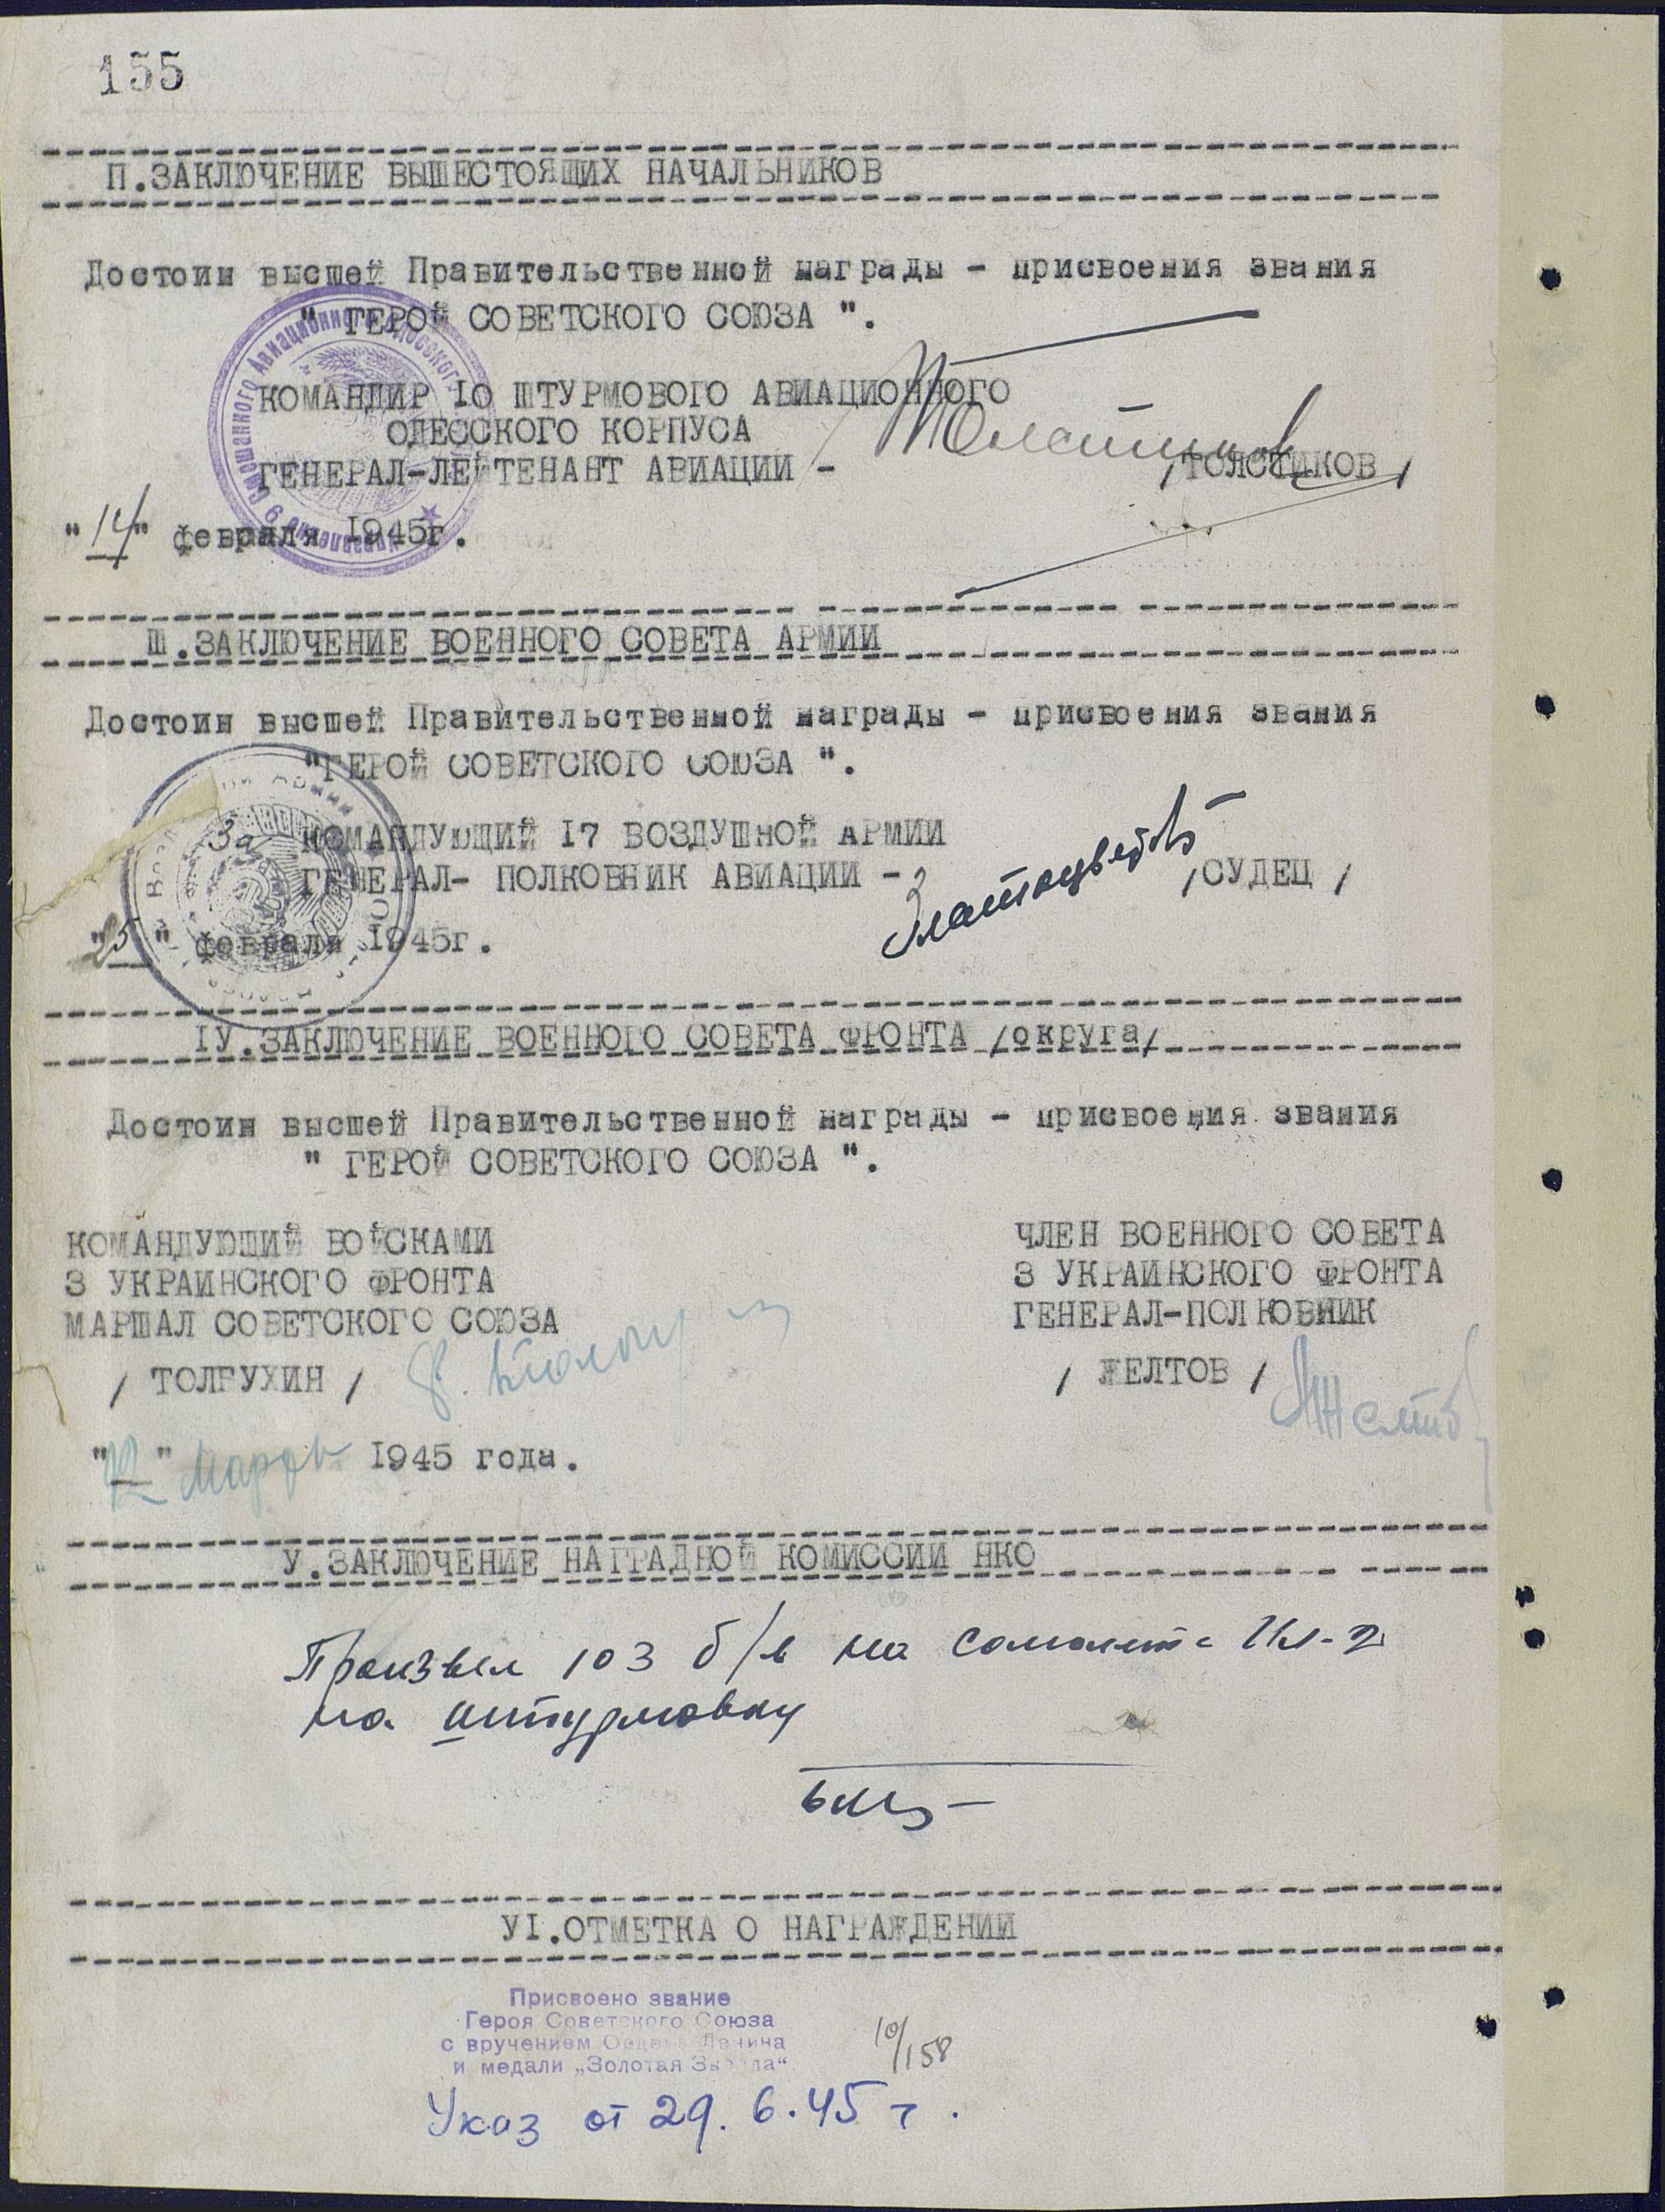 155
П.ЗАКЛЮЧЕНИЕ ВЫШЕСТОЯЩИХ НАЧАЛЬНИКОВ
Достоин высшей Правительственной награды - присвоения звания
" ГЕРОЙ СОВЕТСКОГО СОЮЗА ".
КОМАНДИР 10 ШТУРМОВОГО АВИАЦИОННОГО
ОДЕССКОГО КОРПУСА
ГЕНЕРАЛ-ЛЕЙТЕНАНТ АВИАЦИИ - /ТОЛСТИКОВ/
"14" февраля 1945г.
Ш.ЗАКЛЮЧЕНИЕ ВОЕННОГО СОВЕТА АРМИИ
Достоин высшей Правительственной награды - присвоения звания
"ГЕРОЙ СОВЕТСКОГО СОЮЗА ".
За КОМАНДУЮЩИЙ 17 ВОЗДУШНОЙ АРМИИ
ГЕНЕРАЛ- ПОЛКОВНИК АВИАЦИИ - /СУДЕЦ /
"25" февраля 1945г.
IУ.ЗАКЛЮЧЕНИЕ ВОЕННОГО СОВЕТА ФРОНТА /округа/
Достоин высшей Правительственной награды - присвоения звания
" ГЕРОЙ СОВЕТСКОГО СОЮЗА ".
КОМАНДУЮЩИЙ ВОЙСКАМИ
3 УКРАИНСКОГО ФРОНТА
МАРШАЛ СОВЕТСКОГО СОЮЗА
/ ТОЛБУХИН /
ЧЛЕН ВОЕННОГО СОВЕТА
3 УКРАИНСКОГО ФРОНТА
ГЕНЕРАЛ-ПОЛКОВНИК
/ ЖЕЛТОВ /
Марта 1945 года.
У.ЗАКЛЮЧЕНИЕ НАГРАДНОЙ КОМИССИИ НКО
Произвел 103 б/в на самолете Ил-2
на штурмовку
УI.ОТМЕТКА О НАГРАЖДЕНИИ
Присвоено звание
Героя Советского Союза
с вручением Ордена Ленина
и медали „Золотая Звезда"
10/158
Указ от 29.6.45 г.